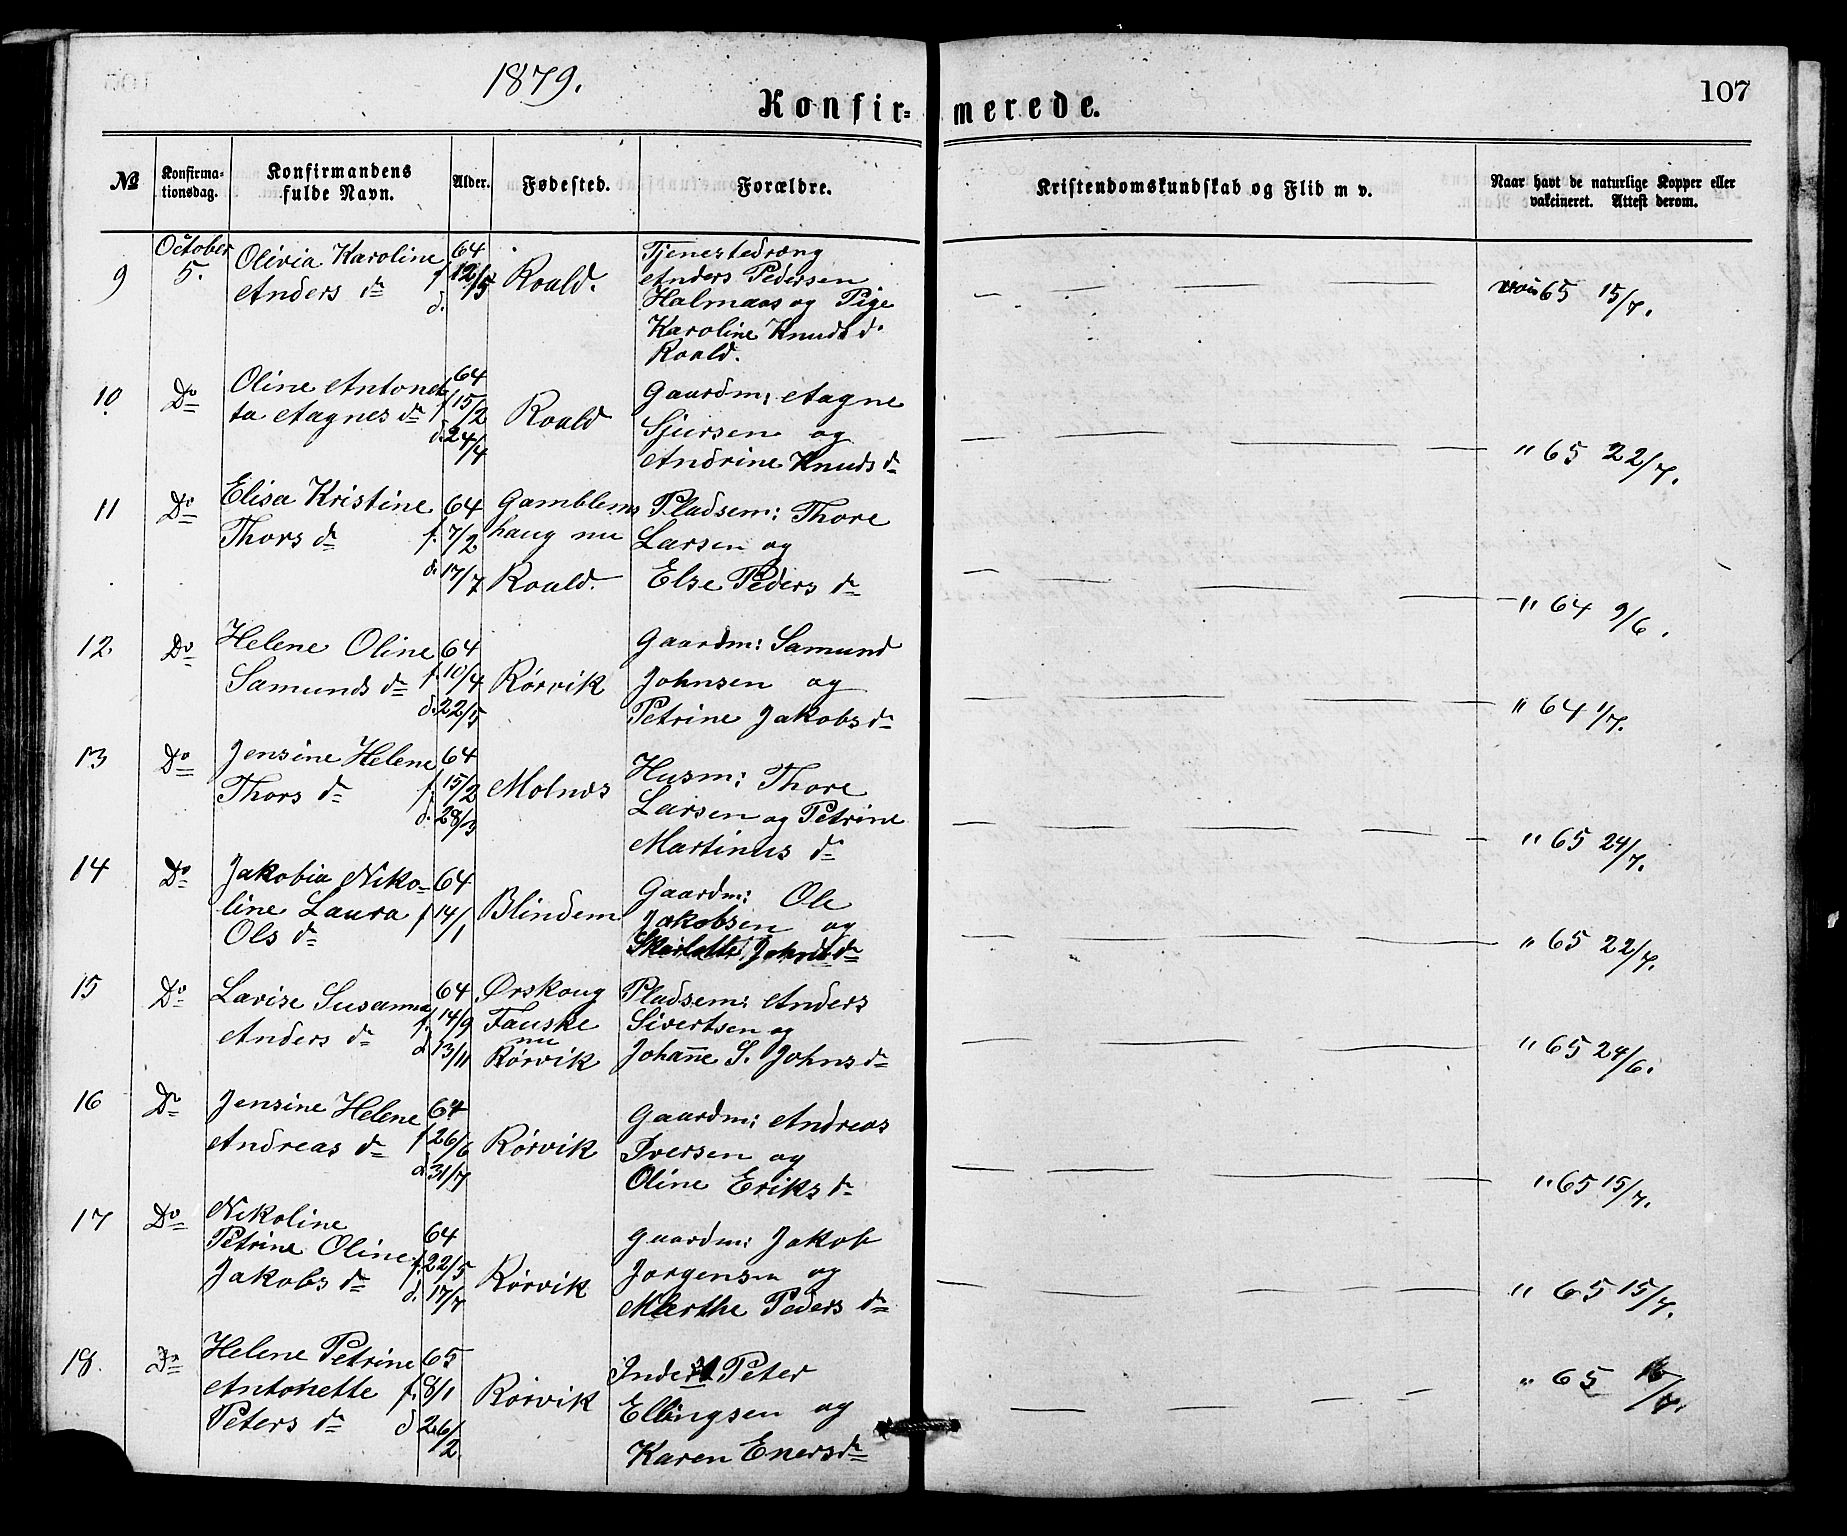 1879.
107
Konfir- merede.
№
Konfirma-
tionsdag.
Konfirmandens
fulde Navn.
Alder.
Fødested.
Forældre.
Kristendomskundskab og Flid m v.
Naar havt de naturlige Kopper eller
vakcineret. Attest derom.
9
October
5.
Olivia Karoline
Anders dr
64
f. 12/5
d.
Roald.
Tjenestedræng
Anders Pedersen
Halmaas og Pige
Karoline Knuds d.
Roald.
65 15/7.
10.
Do
Oline Antonet
ta Aagnes dr
64
f 15/2
d. 24/4
Roald
Gaardm: Aagne
Sjursen og
Andrine Knuds dr
" 65 22/7.
11
Do
Elisa Kristine
Thors dr
64
f. 7/2
d. 17/7
Gamblems
haug nu
Roald.
Pladsem: Thore
Larsen og
Else Peders dr
" 64 9/6.
12.
Do
Helene Oline
Samunds dr
64
f. 10/4
d. 22/5
Rørvik
Gaardm: Samund
Johnsen og
Petrine Jakobs dr
" 64 1/7.
13
Do
Jensine Helene
Thors dr
64
f. 15/2
d. 28/3
Molnes
Husm: Thore
Larsen og Petrine
Martinus dr
" 65 24/7.
14
Do
Jakobia Niko-
line Laura
Ols dr
64
f 14/1
Blindem
Gaardm: Ole
Jakobsen og
Johns dr
" 65 22/7.
15
Do
Lavise Susanna
Anders dr
64
f. 14/9
d 13/11
Ørskoug
Fauske
nu
Rørvik
Pladsem: Anders
Sivertsen og
Johanne S. Johns dr
" 65 24/6.
16
Do
Jensine Helene
Andreas dr
64
f 26/6
d 31/7
Rørvik
Gaardm: Andreas
Iversen og
Oline Eriks dr
" 65 15/7.
17
Do
Nikoline
Petrine Oline
Jakobs dr
64
f. 22/5
d. 17/7
Rørvik
Gaardm: Jakob
Jørgensen og
Marthe Peders dr
" 65 15/7.
18.
Do
Helene Petrine
Antonette
Peters dr
65
f. 8/1
d 26/2.
Rørvik
Inderst Peter
Ellingsen og
Karen Eners dr
" 65